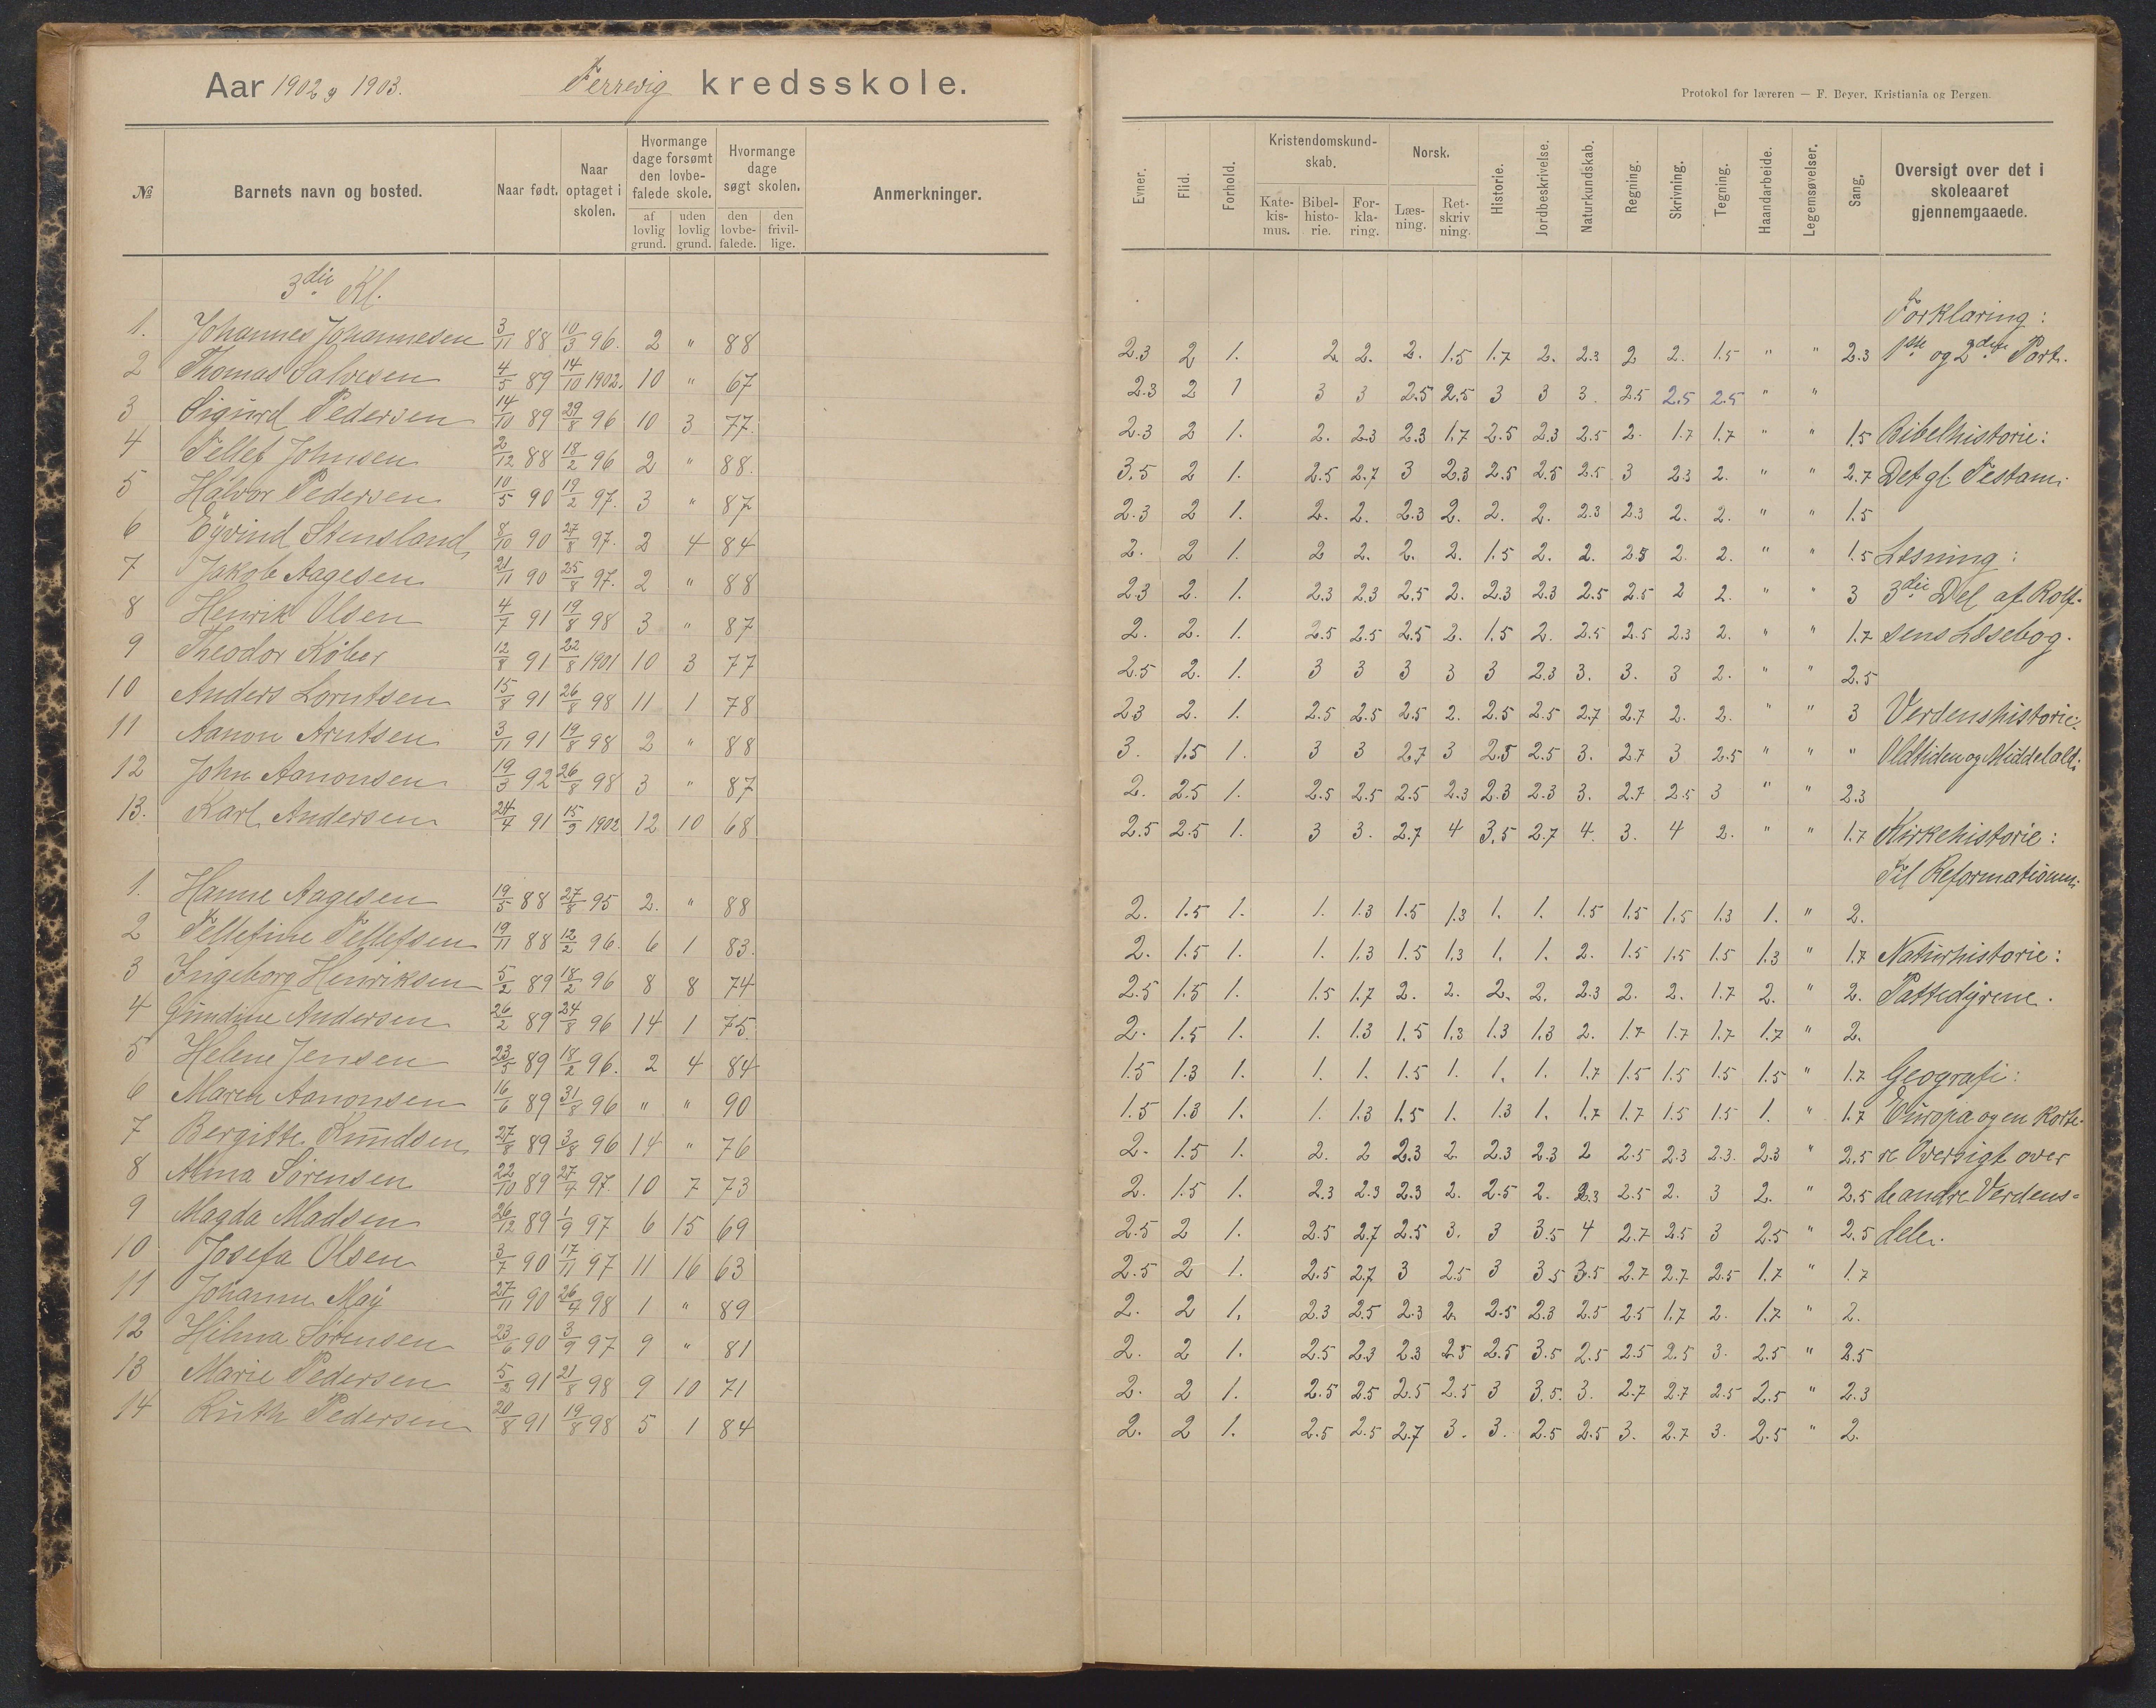 Aar 1902 og 1903. Ferrevig kredsskole.
№ Barnets navn og bosted. Naar født. Naar optaget i skolen. Hvormange dage forsømt den lovbefalede skole. af lovlig grund. uden lovlig grund. Hvormange dage søgt skolen. den lovbefalede. den frivillige. Anmerkninger.
3die Kl.
1. Johannes Johannesen 3/11 88 10/3 96. 2 " 88
2 Thomas Salvesen 4/5 89 14/10 1902. 10 " 67
3 Sigurd Pedersen 14/10 89 29/8 96 10 3 77.
4 Tellef Johnsen 2/12 88 18/2 96 2 " 88.
5 Halvor Pedersen 10/5 90 19/2 97. 3 " 87
6 Eyvind Stensland 8/10 90 27/8 97. 2 4 84
7 Jakob Aagesen 21/11 90 25/8 97. 2 " 88
8 Henrik Olsen 4/7 91 19/8 98 3 " 87
9 Theodor Køber 12/8 91 22/8 1901 10 3 77
10 Anders Lorntsen 15/8 91 26/8 98 11 1 78
11 Aanon Arntsen 3/11 91 19/8 98 2 " 88
12 John Aanonsen 19/3 92 26/8 98 3 " 87
13. Karl Andersen 24/4 91 15/9 1902 12 10 68
1. Hanne Aagesen 19/5 88 27/8 95 2. " 88
2 Tellefine Tellefsen 19/11 88 12/2 96. 6 1 83.
3 Ingeborg Henriksen 5/2 89 18/2 96 8 8 74
4 Gundine Andersen 26/2 89 24/8 96 14 1 75.
5 Helene Jensen 23/5 89 18/2 96. 2 4 84
6 Maren Aanonsen 16/6 89 31/8 96 " " 90
7 Bergitte Knudsen 27/8 89 3/8 96 14 " 76
8 Alma Sørensen 22/10 89 27/4 97. 10 7 73
9 Magda Madsen 26/12 89 1/9 97 6 15 69
10 Josefa Olsen 3/7 90 17/11 97 11 16 63
11 Johanne May 27/11 90 26/4 98 1 " 89
12 Hilma Sørensen 23/6 90 3/9 97 9 " 81
13 Marie Pedersen 5/2 91 21/8 98 9 10 71
14 Ruth Pedersen 20/8 91 19/8 98 5 1 84
Protokol for læreren — F. Beyer, Kristiania og Bergen.
Evner. Flid. Forhold. Kristendomskundskab. Katekismus. Bibelhistorie. Forklaring. Norsk. Læsning. Retskrivning. Historie. Jordbeskrivelse. Naturkundskab. Regning. Skrivning. Tegning. Haandarbeide. Legemsøvelser. Sang. Oversigt over det i skoleaaret gjennemgaaede.
Forklaring:
2.3 2 1. 2. 2. 2. 1.5 1.7 2. 2.3 2 2. 1.5 " " 2.3 1ste og 2den Part.
2.3 2 1 3 3 2.5 2.5 3 3 3. 2.5 2.5 2.5 " "
2.3 2 1. 2. 2.3 2.3 1.7 2.5 2.3 2.5 2. 1.7 1.7 " " 1.5 Bibelhistorie:
3.5 2 1. 2.5 2.7 3 2.3 2.5 2.5 2.5 3 2.3 2. " " 2.7 Det gl. Testam.
2.3 2 1. 2. 2. 2.3 2. 2. 2. 2.3 2.3 2. 2. " " 1.5
2. 2 1. 2 2. 2. 2. 1.5 2. 2. 2.3 2. 2. " " 1.5 Læsning:
2.3 2. 1. 2.3 2.3 2.5 2. 2.3 2.3 2.5 2.5 2 2. " " 3 3die Del af Rolf-
2. 2. 1. 2.5 2.5 2.5 2. 1.5 2. 2.5 2.5 2.3 2. " " 1.7 sens Læsebog.
2.5 2. 1. 3 3 3 3 3 2.3 3. 3. 3 2. " " 2.5
2.3 2. 1. 2.5 2.5 2.5 2. 2.5 2.5 2.7 2.7 2. 2. " " 3 Verdenshistorie:
3. 1.5 1. 3 3 2.7 3 2.5 2.5 3. 2.7 3 2.5 " " " Oldtiden og Middelald.
2. 2.5 1. 2.5 2.5 2.5 2.3 2.3 2.3 3. 2.7 2.5 3 " " 2.3
2.5 2.5 1. 3 3. 2.7 4 3.5 2.7 4. 3. 4 2. " " 1.7 Kirkehistorie:
Til Reformationen.
2. 1.5 1. 1. 1.3 1.5 1.3 1. 1. 1.5 1.5 1.5 1.3 1. " 2.
2. 1.5 1. 1. 1.3 1.5 1.3 1. 1. 2. 1.5 1.5 1.5 1.3 " 1.7 Naturhistorie:
2.5 1.5 1. 1.5 1.7 2. 2. 2. 2. 2.3 2. 2. 1.7 2. " 2. Pattedyrene.
2. 1.5 1. 1. 1.3 1.5 1.3 1.3 1.3 2. 1.7 1.7 1.7 1.7 " 2.
1.5 1.3 1. 1. 1. 1.5 1. 1. 1. 1.7 1.5 1.5 1.5 1.5 " 1.7 Geografi:
1.5 1.3 1. 1. 1.3 1.5 1. 1.3 1. 1.7 1.7 1.5 1.5 1. " 1.7 Europa og en korte-
2. 1.5 1. 2. 2 2.3 2. 2.3 2.3 2 2.5 2.3 2.3. 2.3 " 2.5 re Oversigt over
2. 1.5 1. 2.3 2.3 2.3 2. 2.5 2. 2.3 2.5 2. 3 2. " 2.5 de andre Verdens=
2.5 2 1. 2.5 2.7 2.5 3. 3 3.5 4 2.7 2.5 3 2.5 " 2.5 dele.
2.5 2 1. 2.5 2.7 3 2.5 3 3.5 3.5 2.7 2.7 2.5 1.7 " 1.7
2. 2 1. 2.3 2.5 2.3 2. 2.5 2.3 2.5 2.5 1.7 2. 1.7 " 2.
2. 2 1. 2.5 2.3 2.3 2.5 2.5 3.5 2.5 2.5 2.5 3. 2.5 " 2.5
2. 2 1. 2.5 2.5 2.5 2.5 3 3.5. 3. 2.7 2.7 2.5 2.5 " 2.3
2. 2 1. 2.5 2.5 2.7 3. 3. 2.5 2.5 3. 2.7 3. 2.5 " 2.